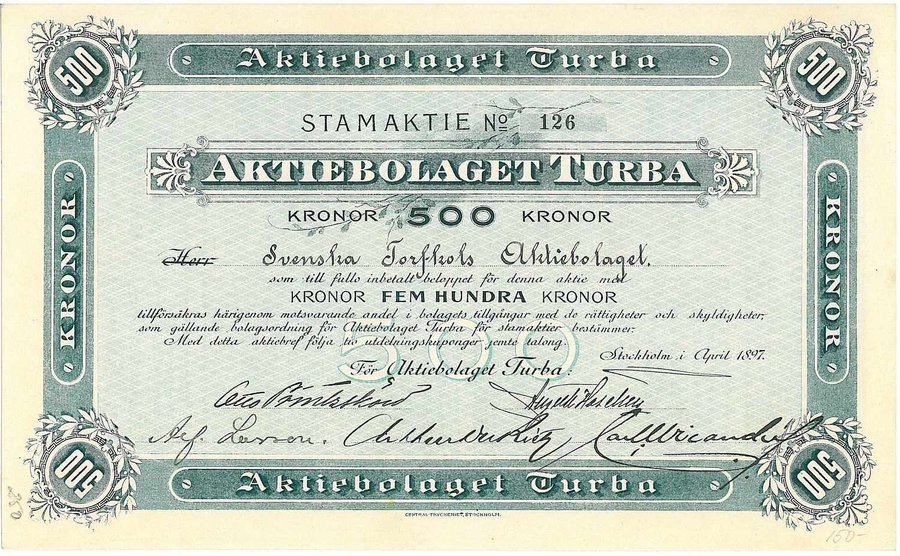 Aktiebolaget Turba
500
500
STAMAKTIE No 126
AKTIEBOLAGET TURBA
KRONOR 500 KRONOR
Herr Svenska Torfkols Aktiebolaget.
som till fullo inbetalt beloppet för denna aktie med
KRONOR FEM HUNDRA KRONOR
tillförsäkras härigenom motsvarande andel i bolagets tillgångar med de rättigheter och skyldigheter,
som gällande bolagsordning för Aktiebolaget Turba för stamaktier bestämmer.
Med detta aktiebref följa tio utdelningskuponger jemte talong.
500
Stockholm i April 1897.
För Aktiebolaget Turba:
Otto
Alf. Larson. Carl Wicander
KRONOR
KRONOR
500
500
Aktiebolaget Turba
CENTRAL-TRYCKERIET, STOCKHOLM.
250
150-